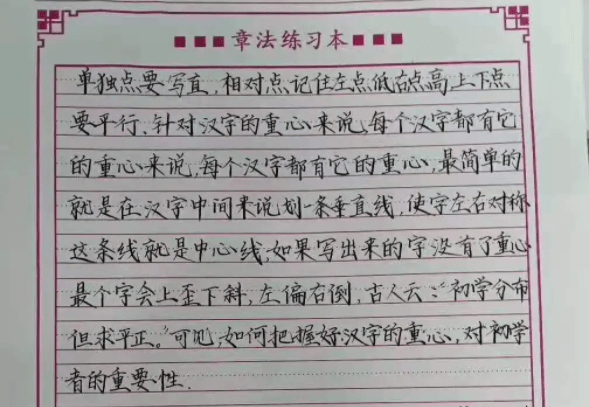 ■■■章法练习本■■■
单独点要写直，相对点记住左点低右点高，上下点
要平行、针对汉字的重心来说，每个汉字都有它
的重心来说，每个汉字都有它的重心，最简单的
就是在汉字中间来说划一条垂直线，使字左右对称
这条线就是中心线，如果写出来的字没有了重心
最个字会上歪下斜，左偏右倒，古人云：“初学分布
但求平正。”可见，如何把握好汉字的重心，对初学
者的重要性．